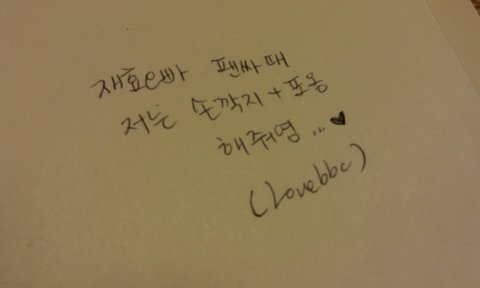 재효e빠 팬싸때
저는 손깍지+포옹
해줘영...♥
(lovebbc)